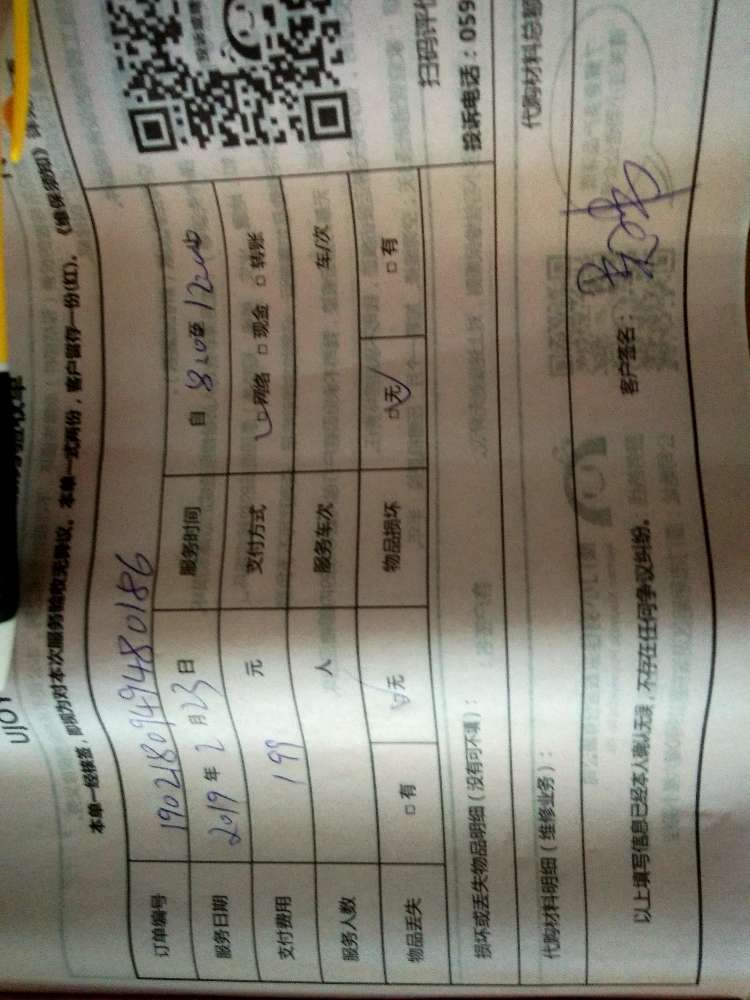 UJOY
本单一经核签，即视为对本次服务验收无异议。本单一式两份，客户留存一份(红)。《维保须知》
订单编号 1902180949480186
服务日期 2019 年 2 月 23 日 服务时间 自 820 至 1200
支付费用 199 元 支付方式 □网络 □现金 □转账
服务人数 人 服务车次 车/次
物品丢失 □有 □无 物品损坏 □无 □有
损坏或丢失物品明细（没有可不填）：
代购材料明细（维修业务）：
以上填写信息已经本人确认无误，不存在任何争议纠纷。 客户签名：
扫码评价
投诉电话：059
代购材料总额